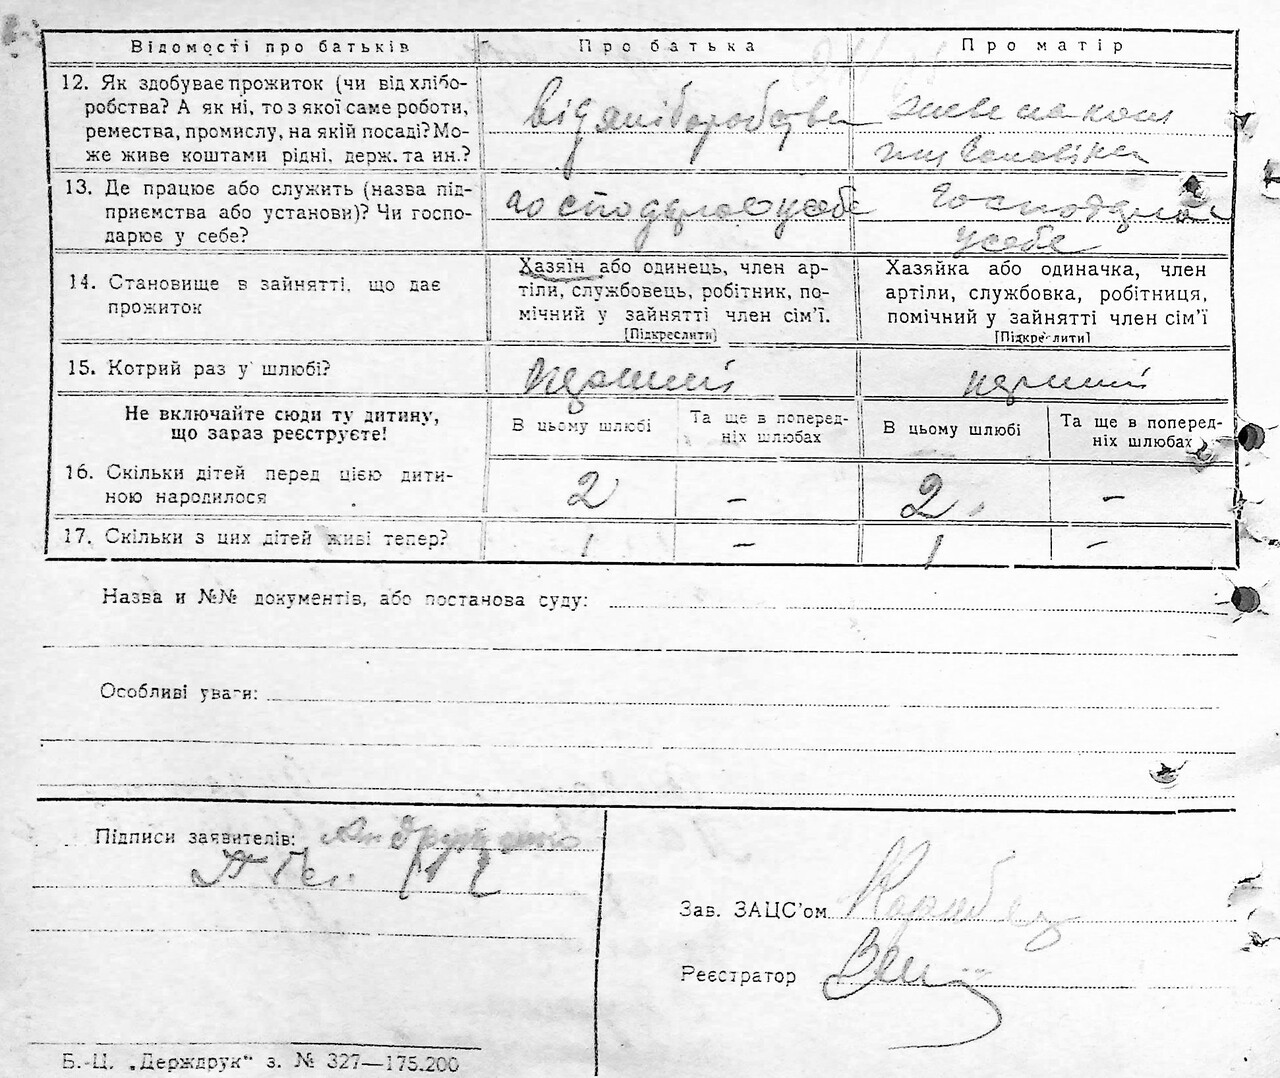 Відомості про батьків
Про батька
Про матір
12. Як здобуває прожиток (чи від хлібо-
робства? А як ні, то з якої саме роботи,
ремества, промислу, на якій посаді? Мо-
же живе коштами рідні, держ. та ин.?
від хліборобства
живе на кош
ти чоловіка
13. Де працює або служить (назва під-
приємства або установи)? Чи госпо-
дарює у себе?
господарює у себе
господарює
у себе
14. Становище в зайнятті, що дає
прожиток
Хазяїн або одинець, член ар-
тіли, службовець, робітник, по-
мічний у зайнятті член сім’ї.
[Підкреслити]
Хазяйка або одиначка, член
артіли, службовка, робітниця,
помічний у зайнятті член сім’ї
[Підкреслити]
15. Котрий раз у шлюбі?
перший
Не включайте сюди ту дитину,
що зараз реєструєте!
В цьому шлюбі
Та ще в поперед-
ніх шлюбах
В цьому шлюбі
Та ще в поперед-
ніх шлюбах
16. Скільки дітей перед цією дити-
ною народилося
2
–
2
–
17. Скільки з цих дітей живі тепер?
1
–
1
–
Назва и №№ документів, або постанова суду:
Особливі уваги:
Підписи заявителів:
Зав. ЗАЦС’ом
Реєстратор
Б.-Ц. „Держдрук“ з. № 327—175.200